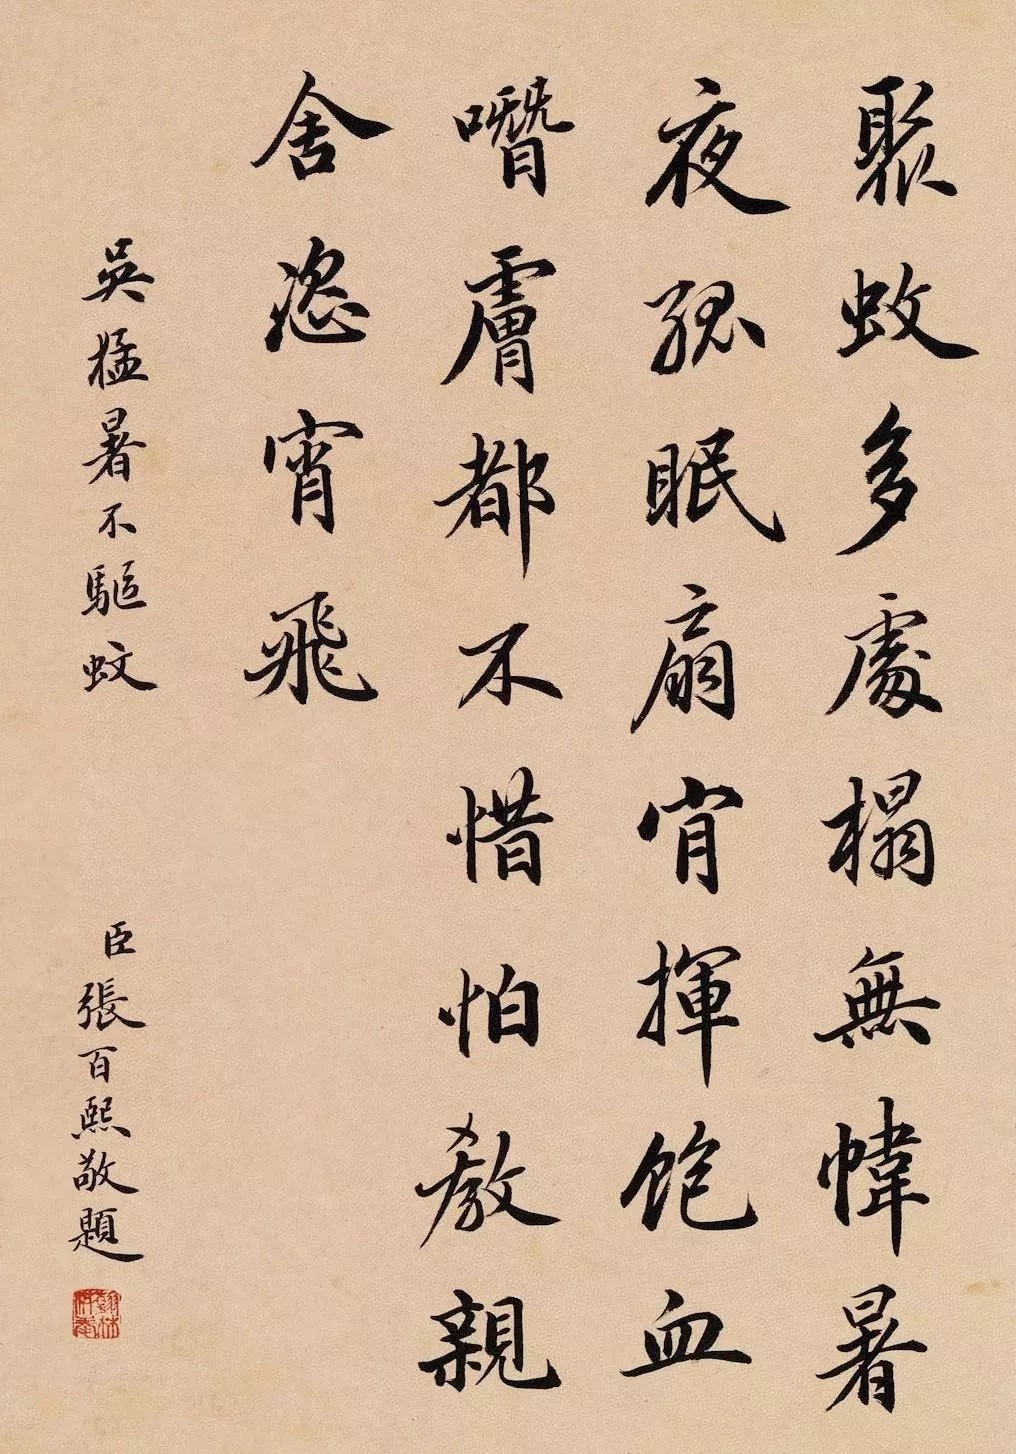 聚蚊多處榻無幃暑
夜孤眠扇肎揮飽血
噆膚都不惜怕教親
舍恣宵飛
吳猛暑不驅蚊
臣張百熙敬題
翰林供奉